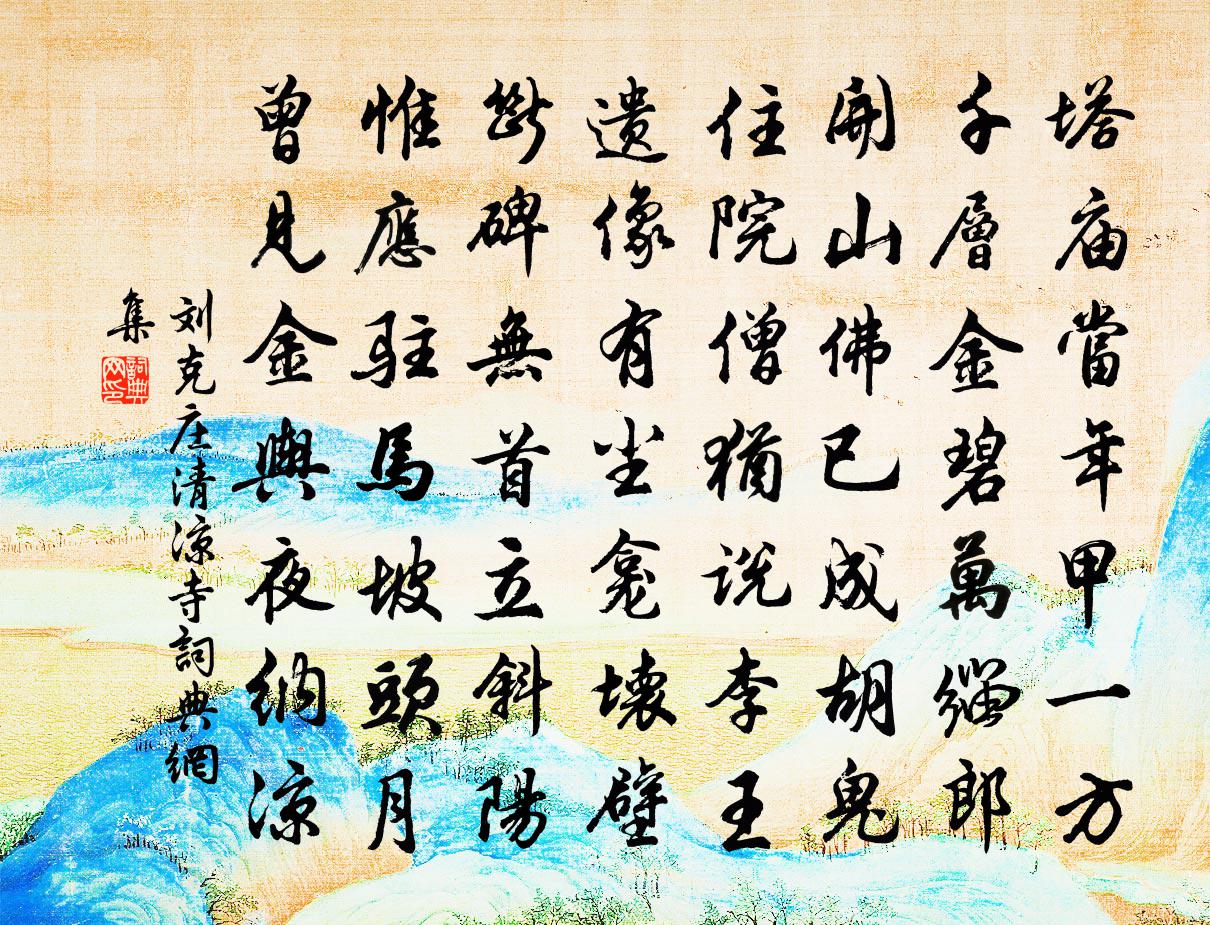 塔庙當年甲一方
千層金碧萬緇郎
開山佛已成胡鬼
住院僧猶说李王
遗像有尘龛壞壁
斷碑無首立斜陽
惟應驻馬坡頭月
曾見金輿夜納凉
刘克庄清凉寺詞典網
集
詞典网印